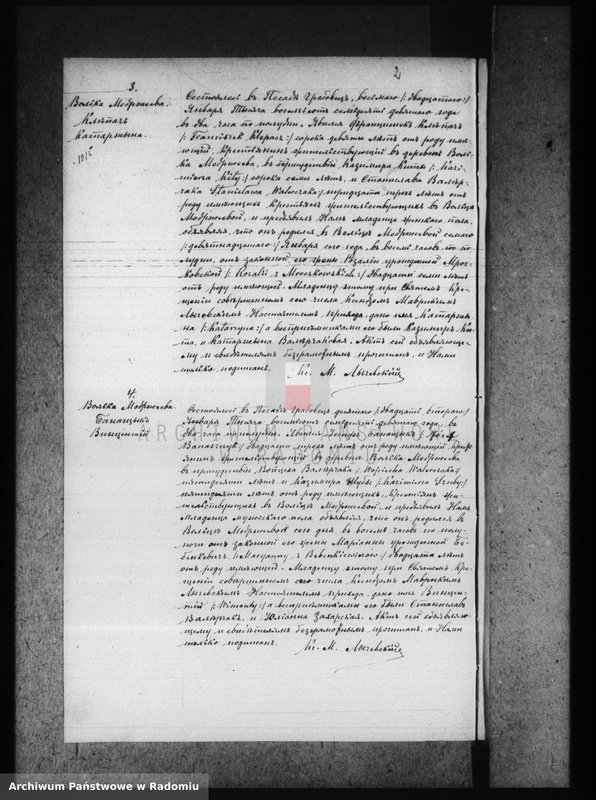 2
3.
Волька Модржеева.
Клѣпачъ
Катаржина.
Состоялось въ Посадѣ Грабовцѣ, восьмаго /: двадцатаго :/
Января тысяча восемьсотъ семьдесятъ девятаго года
въ два часа по полудни. Явился Францишекъ Клѣпачъ
/: Franciszek Klepacz :/ сорока девяти лѣтъ отъ роду имѣ-
ющій, крестьянинъ жительствующій въ деревнѣ Воль-
ка Модржеева, въ присутствіи Казимира Киты /: Kazi-
mierza Kity :/ сорока семи лѣтъ, и Станислава Валѣр-
чака Stanisława Walerczaka :/ тридцати трехъ лѣтъ отъ
роду имѣющихъ крестьянъ жительствующихъ въ Вольцѣ
Модржеевой, и предъявилъ Намъ младенца женскаго пола,
объявляя, что онъ родился въ Вольцѣ Модржеевой седьмаго
/: девятнадцатаго :/ Января сего года, въ восемь часовъ по по-
лудни, отъ законной его жены Розаліи урожденной Мроч-
ковской /: Rozalii z :/ двадцати семи лѣтъ
отъ роду имѣющей. Младенцу этому при Святомъ Кре-
щеніи совершенномъ сего числа Ксендзомъ Маврикіемъ
Лычевскимъ Настоятелемъ прихода, дано имя Катаржи-
на /: Katarzyna :/ а воспріемниками его были Казимиръ Ки-
та, и Катаржина Валѣрчакова. Актъ сей объявляюще-
му и свидѣтелямъ безграмотнымъ прочитанъ, и Нами
только подписанъ.
Кс. М. Лычевскій
4.
Волька Модржеева
Банащикъ
Винцентій
Состоялось въ Посадѣ Грабовцѣ десятаго /: двадцать втораго :/
Января тысяча восемьсотъ семьдесятъ девятаго года, въ
два часа по полудни. Явился Іозефъ /: Józef
двадцати трехъ лѣтъ отъ роду имѣющій, кресть-
янинъ жительствующій въ деревнѣ Волька Модржеева
въ присутствіи Войцеха Валѣрчака /: Wojciecha Walerczaka :/
пятидесяти лѣтъ и Казимира /: Kazimierza
пятидесяти лѣтъ отъ роду имѣющихъ, крестьянъ жи-
тельствующихъ въ Вольцѣ Модржеевой, и предъявилъ Намъ
младенца мужескаго пола объявляя, что онъ родился въ
Вольцѣ Модржеевой сего дня въ восемь часовъ по полу-
ночи отъ законной его жены Маріанны урожденной
/: Maryanny z :/ двадцати лѣтъ
отъ роду имѣющей. Младенцу этому при Святомъ Кре-
щеніи совершенномъ сего числа Ксендзомъ Маврикіемъ
Лычевскимъ Настоятелемъ прихода, дано имя Винцен-
тій /: Wincenty :/ а воспріемниками его были Станиславъ
Валѣрчакъ, и Юліанна Захарская. Актъ сей объявляю-
щему и свидѣтелямъ безграмотнымъ прочитанъ, и Нами
только подписанъ.
Кс. М. Лычевскій
Archiwum Państwowe w Radomiu